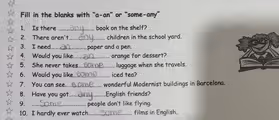 Fill in the blanks with "a-an" or "some-any"
1. Is there any book on the shelf?
2. There aren't any children in the school yard.
3. I need an paper and a pen.
4. Would you like an orange for dessert?
5. She never takes some luggage when she travels.
6. Would you like some iced tea?
7. You can see some wonderful Modernist buildings in Barcelona.
8. Have you got any English friends?
9. Some people don't like flying.
10. I hardly ever watch some films in English.